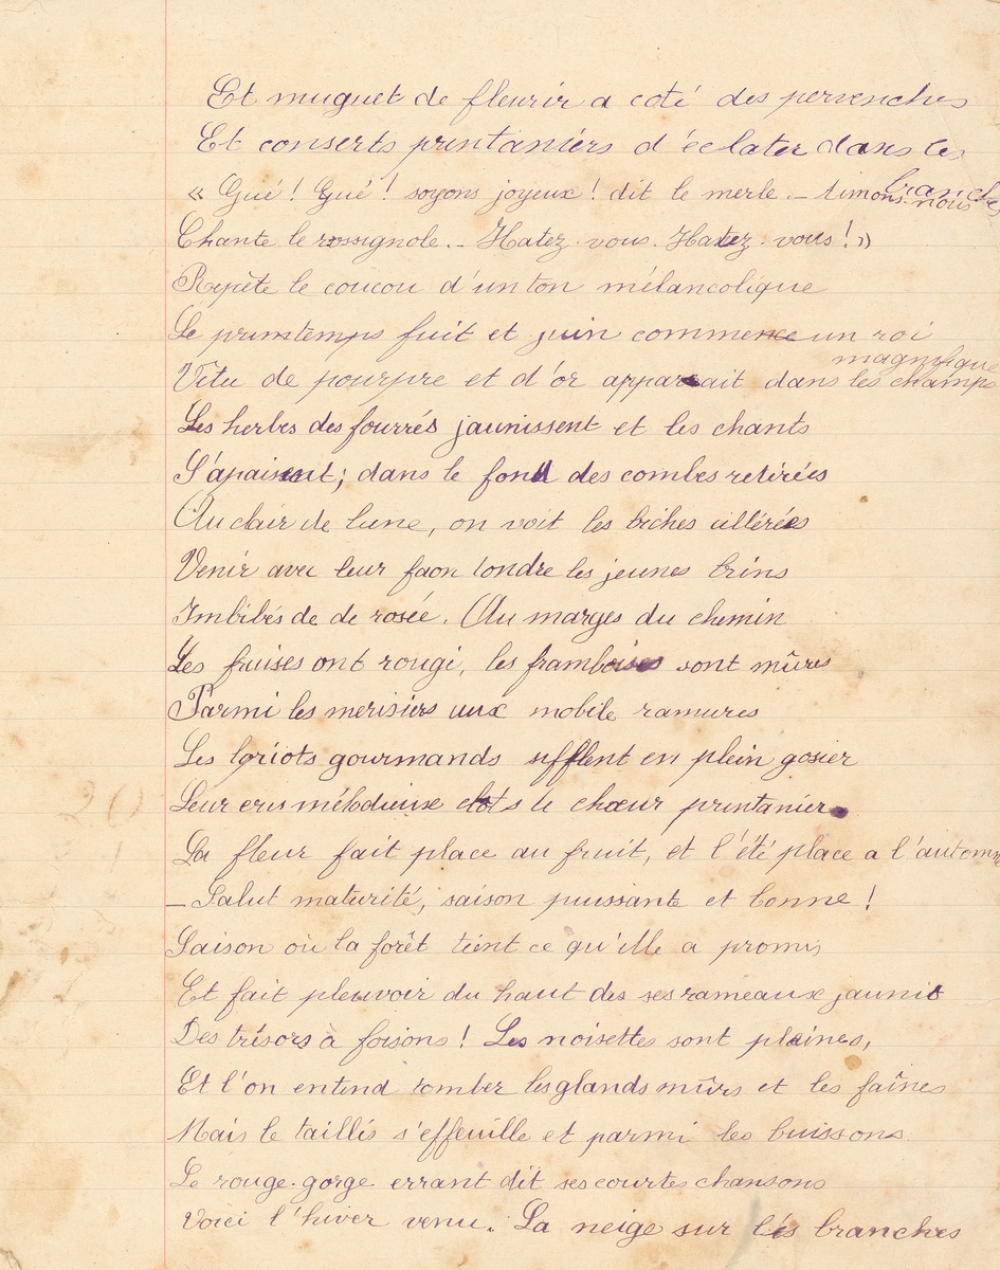 Et muguet de fleurir a coté des pervenches
Et conserts printaniers d'éclater dans les
branches
« Gué ! Gué ! soyons joyeux ! dit le merle. – Aimons-nous
Chante le rossignole. – Hatez-vous. Hatez-vous ! »
Repète le coucou d'un ton mélancolique
Le printemps fuit et juin commence un roi
magnifique
Vêtu de pourpre et d'or apparait dans les champs
Les herbes des fourrés jaunissent et les chants
S'apaisent ; dans le fond des combes retirées
Au clair de lune, on voit les biches altérées
Venir avec leur faon tondre les jeunes brins
Imbibés de de rosée. Au marges du chemin
Les fraises ont rougi, les framboises sont mûres
Parmi les merisiers aux mobile ramures
Les loriots gourmands sifflent en plein gosier
Leur cris mélodieux clots le chœur printanier.
La fleur fait place au fruit, et l'été place a l'automne
– Salut maturité, saison puissante et bonne !
Saison où la forêt tient ce qu'elle a promis
Et fait pleuvoir du haut des ses rameaux jaunis
Des trésors à foisons ! Les noisettes sont pleines,
Et l'on entend tomber les glands mûrs et les faînes
Mais le taillis s'effeuille et parmi les buissons
Le rouge-gorge errant dit ses courtes chansons
Voici l'hiver venu. La neige sur les branches